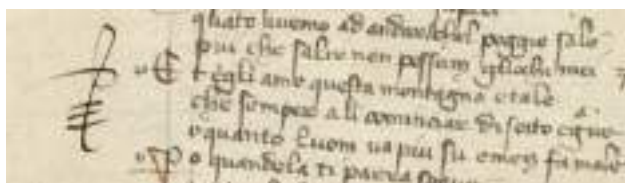 quāto luuemo ad andar chel poggio sale
piu che salir non possam gliochi mei
E t egli ame questa montagna e tale
che sempre ali cominciar di soto e gᵃue
o quanto luom ua piu su e men fa male
P o quandola ti parra